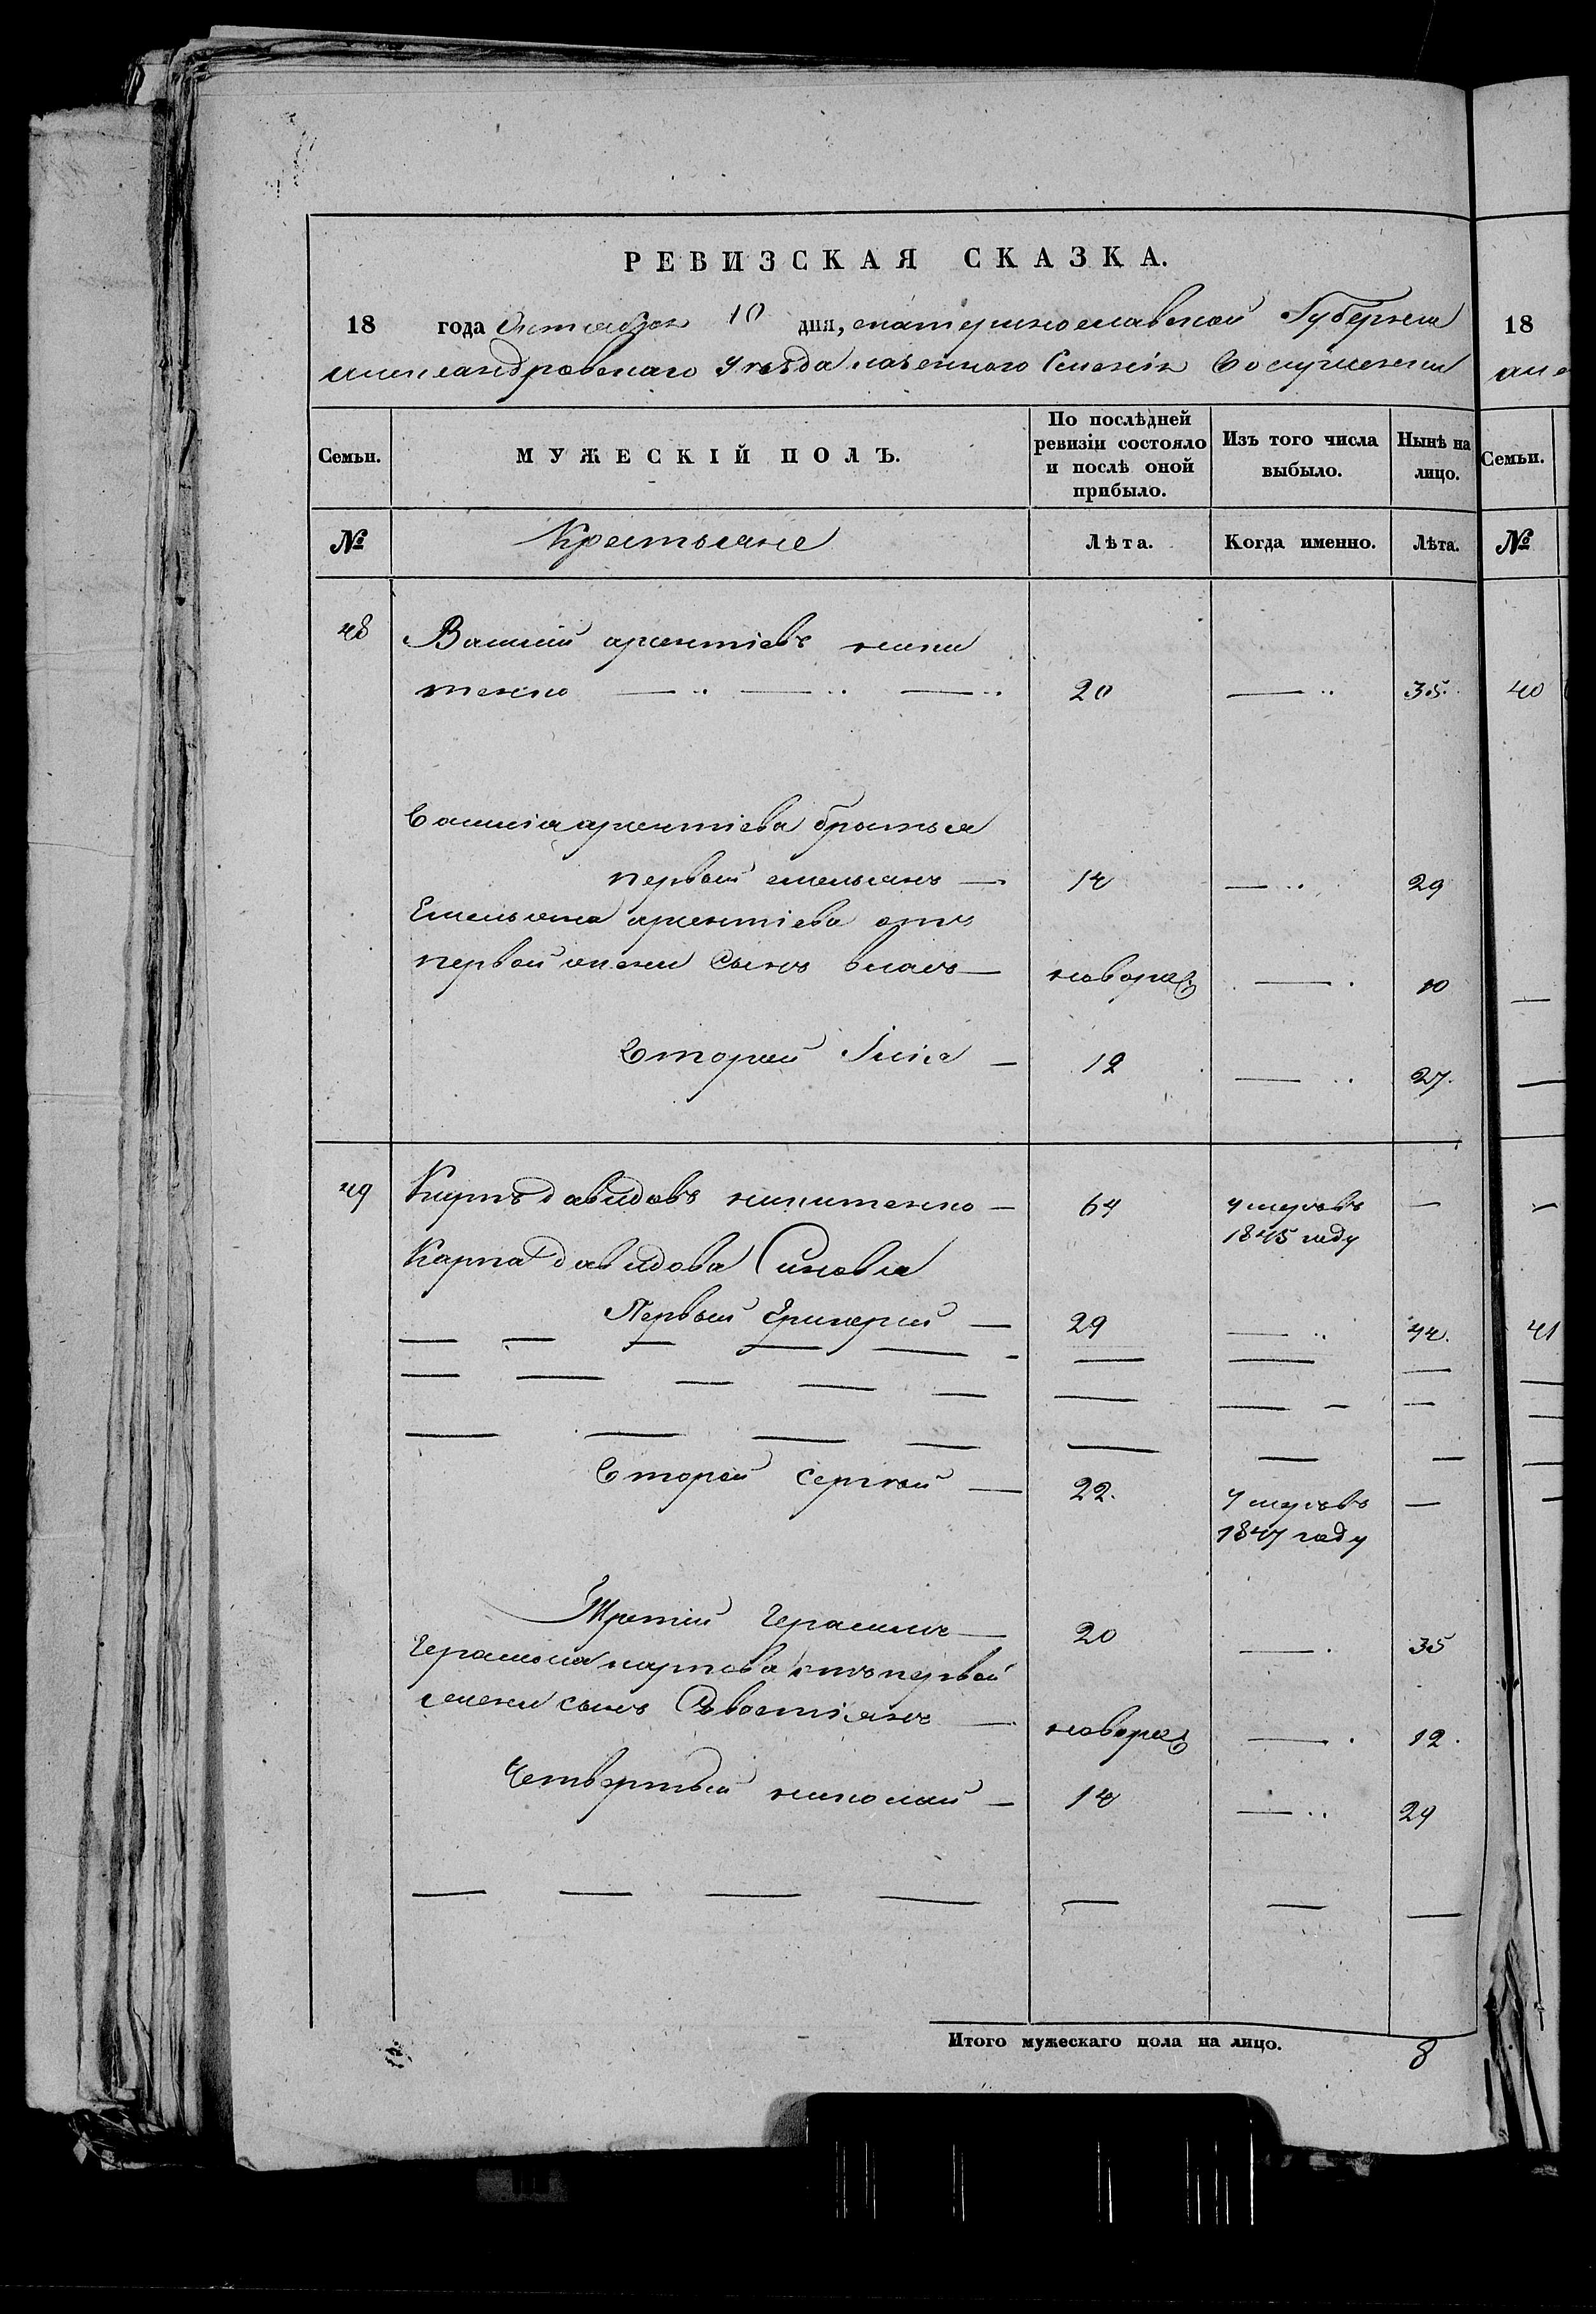 РЕВИЗСКАЯ СКАЗКА.
18 года октября 10 дня, екатеринославской Губерніи
александровскаго Уезда казенного Селенія
Семьи. МУЖЕСКІЙ ПОЛЪ. По послѣдней ревизіи состояло и послѣ оной прибыло. Изъ того числа выбыло. Нынѣ на лицо.
№ Крестьяне Лѣта. Когда именно. Лѣта.
48 Василій арентіевъ ники
тенко — .. — .. — .. 20 — .. 35.
Василія арентіева братья
первый емельянъ — 14 — .. 29
Емельяна арентіева отъ
первой жени сынъ власъ — новорож — . 10
Второй — 12 — .. 27.
49 Карпъ давидовъ никитенко — 64 умеръ въ —
1845 году
Карпа давидова Синовья
Первый Григорій — 29 — .. 44.
Второй сергей — 22. Умеръ въ —
1847 году
Третій Герасимъ — 20 — . 35
Герасима карпова отъ первой
жени сынъ Севостіянъ — новорож — . 12.
Четвертый николай — 14 — .. 29
Итого мужескаго пола на лицо. 8
18
Семьи.
№
40
41